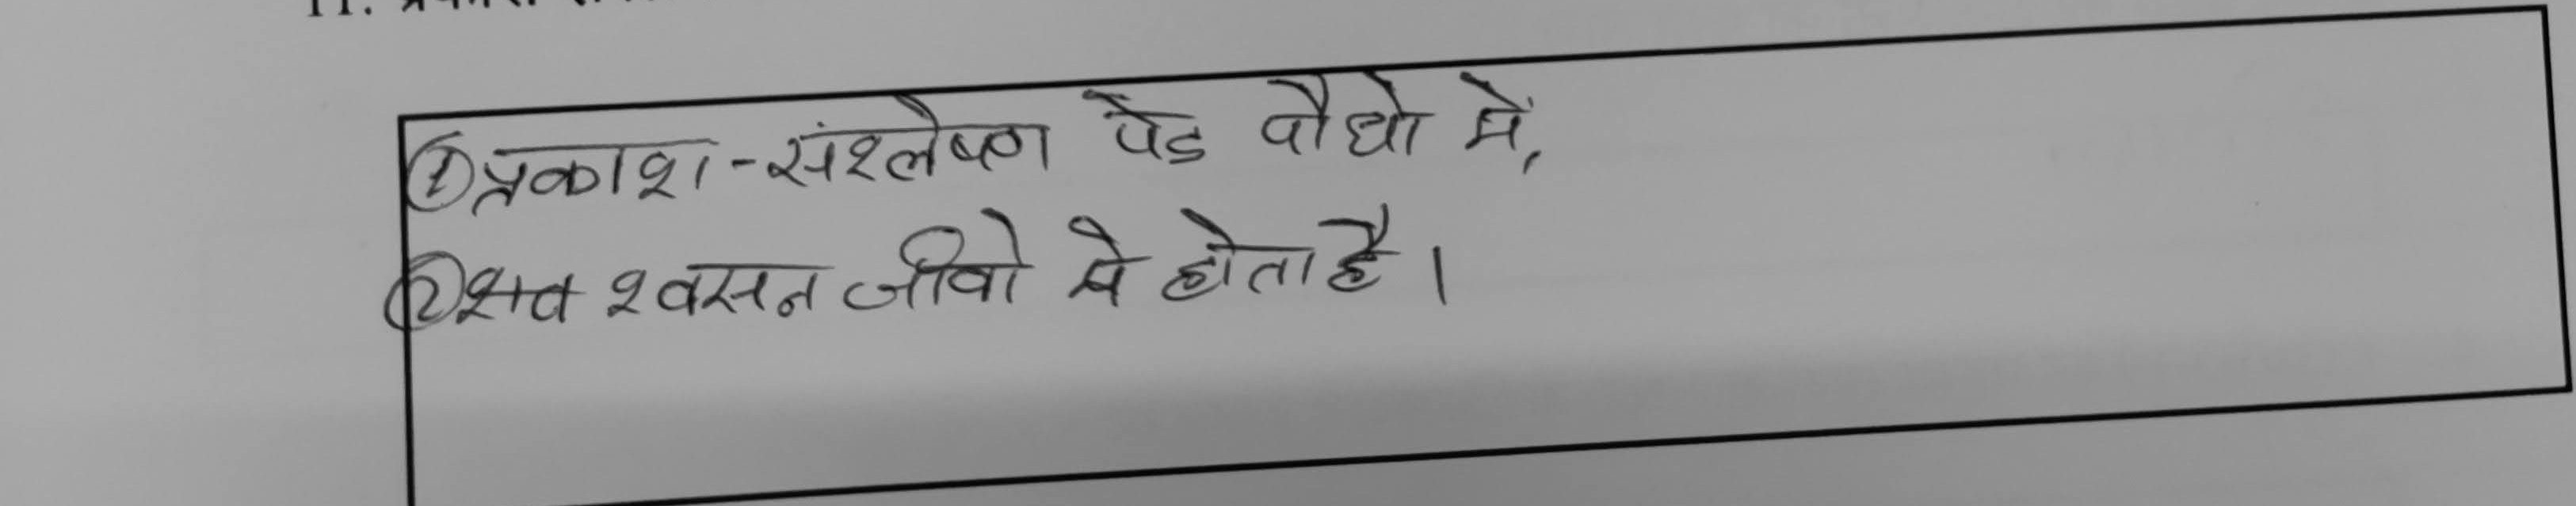 ① प्रकाश-संश्लेषण पेड पौधो में,
② श्वसन जीवो मे होता है।